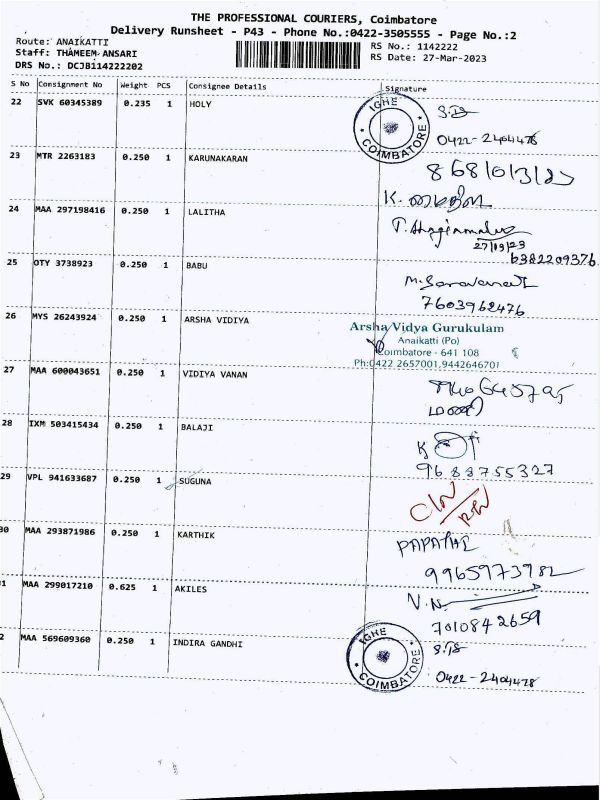 THE PROFESSIONAL COURIERS, Coimbatore
Delivery Runsheet - P43 - Phone No.:0422-3505555 - Page No.:2
Route: ANAIKATTI
Staff: THAMEEM ANSARI
DRS No.: DCJB114222202
RS No.: 1142222
RS Date: 27-Mar-2023
S No Consignment No Weight PCS Consignee Details Signature
22 SVK 60345389 0.235 1 HOLY
IGHE COIMBATORE
0422-2404478
23 MTR 2263183 0.250 1 KARUNAKARAN
K.
24 MAA 297198416 0.250 1 LALITHA
27/03/23
6382209376
25 OTY 3738923 0.250 1 BABU
M. Saravanan
7603962476
26 MYS 26243924 0.250 1 ARSHA VIDIYA
Arsha Vidya Gurukulam
Anaikatti (Po)
Coimbatore - 641 108
Ph:0422 2657001,9442646701
27 MAA 600043651 0.250 1 VIDIYA VANAN
மணி
28 IXM 503415434 0.250 1 BALAJI
K
9688755327
29 VPL 941633687 0.250 1 SUGUNA
30 MAA 293871986 0.250 1 KARTHIK
9965973982
1 MAA 299017210 0.625 1 AKILES
V.N
7010842659
2 MAA 569609360 0.250 1 INDIRA GANDHI
IGHE COIMBATORE
0422-2404478